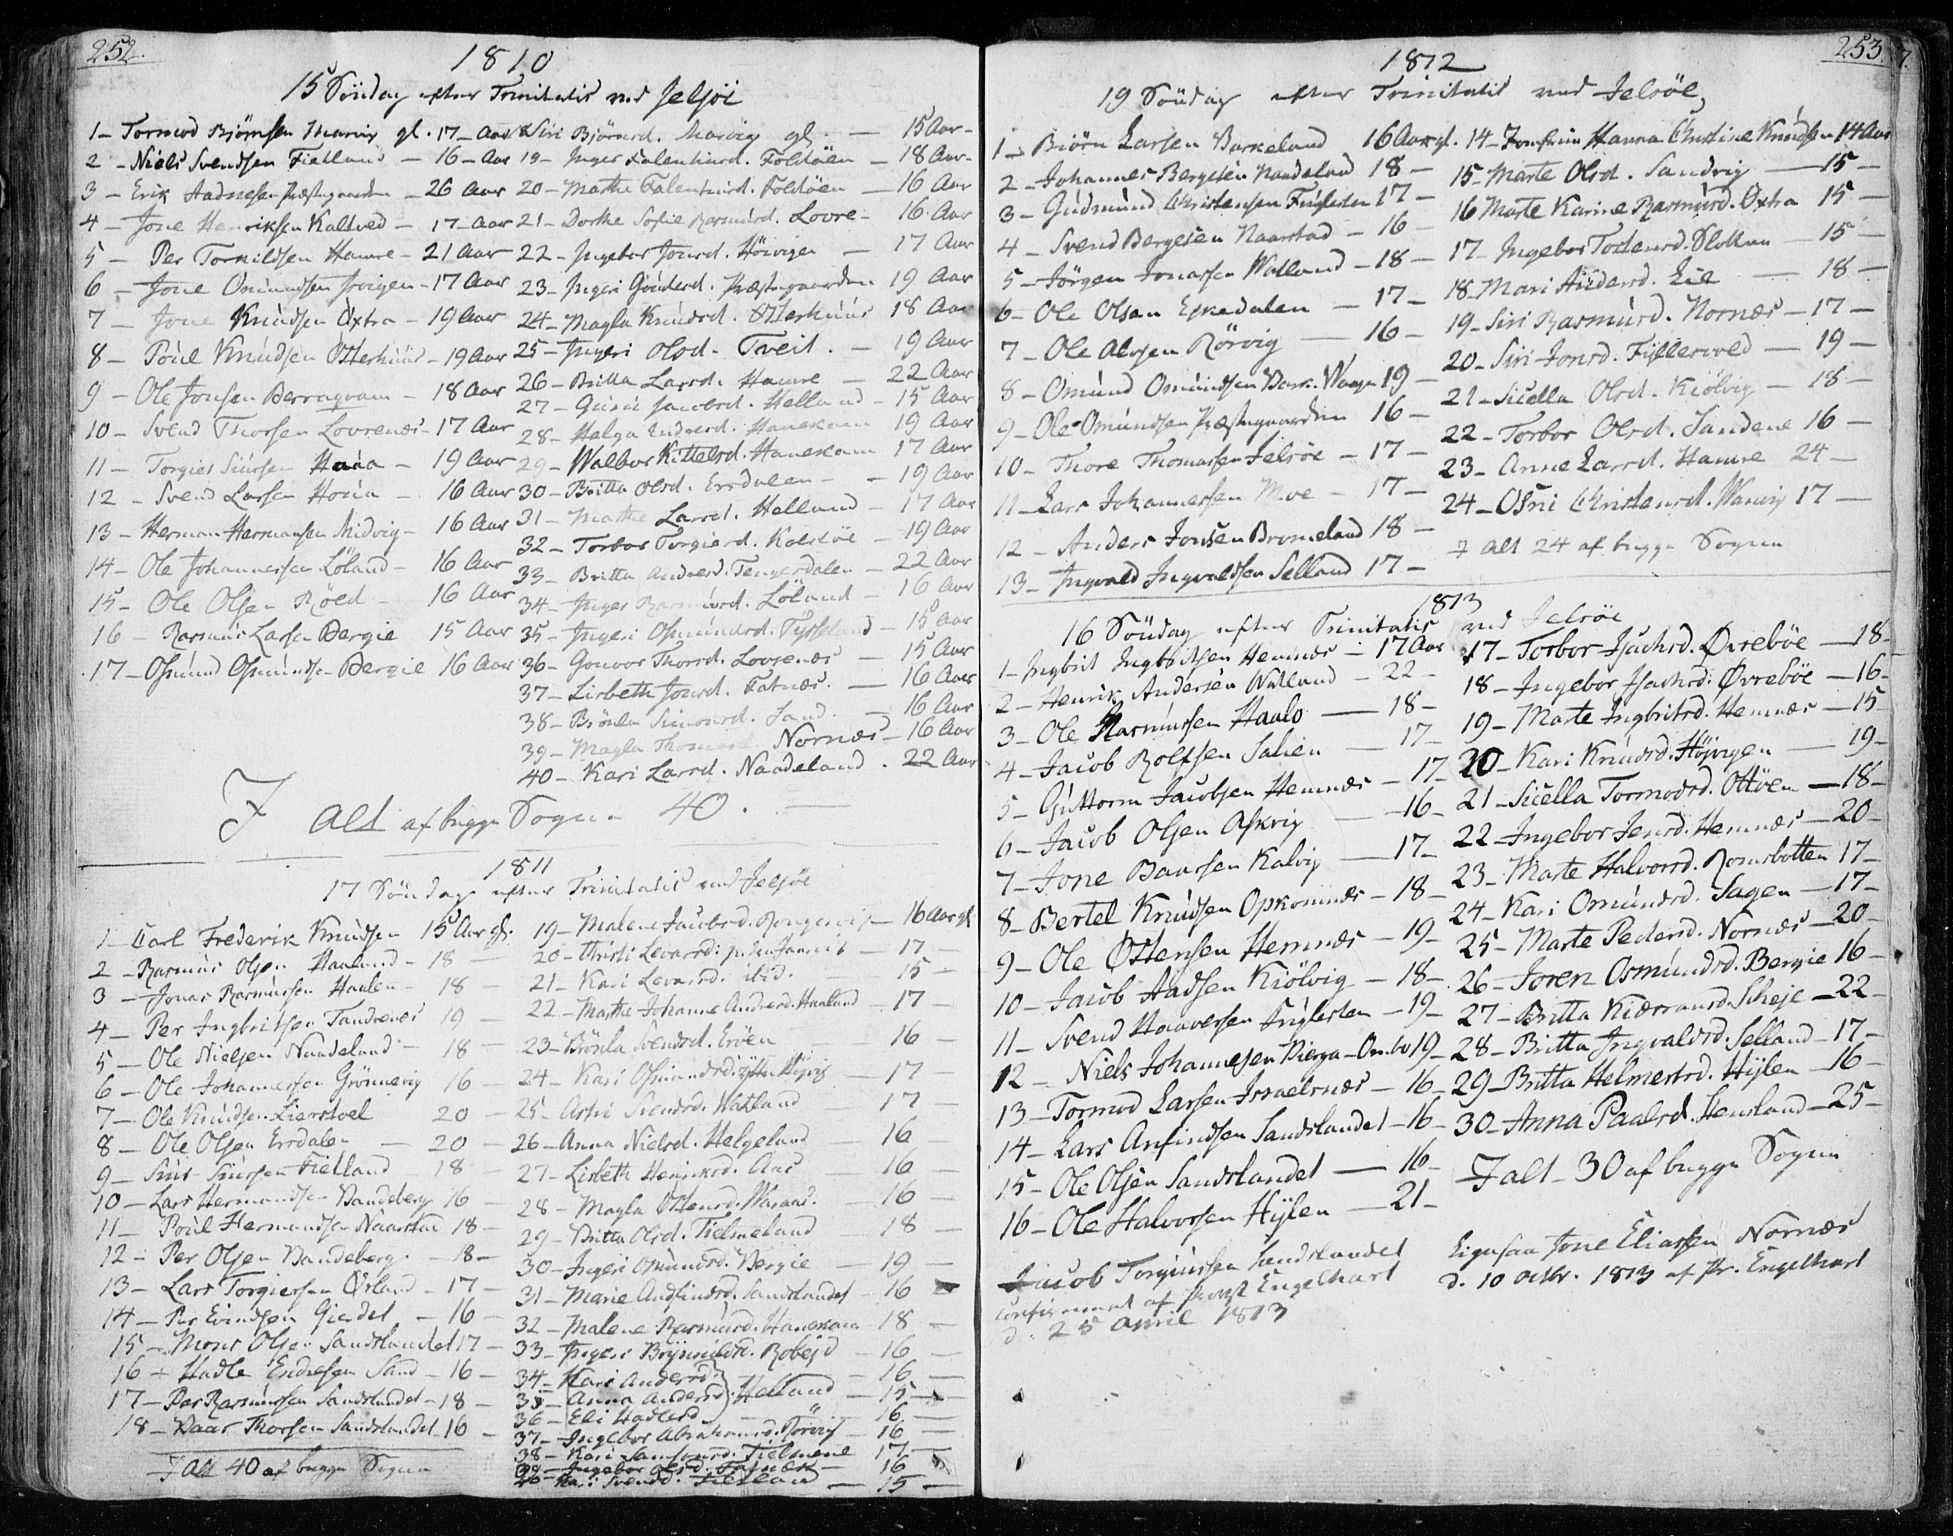 252.
1810
15 Söndag efter Trinitatis ved Jelsöe
1 – Tormod Bjørnsen Marvig gl. 17 – Aar
2 – Niels Svendsen Fietland – 16 – Aar
3 – Erik Hadnesen Præstegaarden – 26 Aar
4 – Jone Henriksen Kaltved – 17 Aar
5 – Per Torkildsen Hamre – 21 Aar
6 – Jone Omundsen – 17 Aar
7 – Jone Knudsen Øxtra – 19 Aar
8 – Poul Knudsen Otterhuus – 19 Aar
9 – Ole Jonsen Berragvam – 18 Aar
10 – Svend Thorsen Lovrenæs – 17 Aar
11 – Torgies Siursen – 19 Aar
12 – Svend Larsen – 16 Aar
13 – Herman Hermansen Midvig – 16 Aar
14 – Ole Johannesen Löland – 16 Aar
15 – Ole Olsen Röed – 16 Aar
16 – Rasmus Larsen Bergie 15 Aar
17 – Osmund Osmundsen Bergie 16 Aar
18 Siri Björnsd. Marvig gl. – 15 Aar
19 – Inger Falentinsd. Foldöen – 18 Aar
20 – Marthe Falentinsd. Foldöen – 16 Aar
21 – Dorthe Sofie Rasmusd. Lovre – 16 Aar
22 – Ingebor Jonsd. Höivigen – 17 Aar
23 – Ingeri Præstegaarden 19 Aar
24 – Magla Knudsd. Otterhuus 18 Aar
25 – Ingeri Olsd. Tveit. – 19 Aar
26 – Britta Larsd. Hamre – 22 Aar
27 – Jacobsd. Helland – 15 Aar
28 – Helga Hanekam 19 Aar
29 – Walbor Kittelsd. Hanekam 17 Aar
30 – Britta Olsd. Ersdalen – 19 Aar
31 – Marthe Larsd. Helland – 17 Aar
32 – Torbor Torgiersd. Kolstöe – 19 Aar
33 – Britta Andersd. Tengesdalen – 22 Aar
34 – Inger Rasmusd. Löland – 16 Aar
35 – Ingeri Osmundsd. Tysseland – 15 Aar
36 – Gonvor Thorsd. Lovrenæs – 15 Aar
37 – Lisbeth Jonsd. Fatnæs. – 16 Aar
38 – Brönla Simonsd. Sand. – 16 Aar
39 – Magla Thomasd. Nornæs – 16 Aar
40 – Kari Larsd. Naadeland. 22 Aar
I Alt af begge Sogne 40.
1811
17 Söndag efter Trinitatis ved Jelsöe
1 – Carl Frederik Knudsen 15 Aar gl.
2 – Rasmus Olsen Haaland – 18 –
3 – Jonas Rasmusen Haalen – 18 –
4 – Per Ingbritsen Tandrenæs 19 –
5 – Ole Nielsen Naadeland – 18 –
6 – Ole Johannesen Grönnevig 16 –
7 – Ole Knudsen Lierstoel 20 –
8 – Ole Olsen Ersdalen – 20 –
9 – Siur Siursen Fietland 18 –
10 – Lars Hermandsen Vandeberg 16 –
11 – Poul Hermandsen Naarstad 18 –
12 – Per Olsen Vandeberg. – 18 –
13 – Lars Torgiersen Østand – 17 –
14 – Per Evindsen Giesdet – 16 –
15 – Mons Olsen Sandslandet 17 –
16 – Hadle Endresen Sand – 16 –
17 – Per Rasmusen Sandslandet – 18 –
18 – Baar Thorsen Sandslandet 16 –
I Alt 40 af begge Sogne
19 – Malene Jacobsd. – 16 Aar gl
20 – Christi Levarsd. – 17 –
21 – Kari Levarsd. ibid. – 15 –
22 – Marthe Johanne Andersd. Haaland – 17 –
23 – Brönla Svendsd. Eröen 16 –
24 – Kari Osmundsd. – 17 –
25 – Astri Svendsd. Watland – 17 –
26 – Anna Nielsd. Helgeland – 16
27 – Lisbeth Henriksd. Aas – 16 –
28 – Magla Ostensd. – 16 –
29 – Britta Olsd. Tielmeland – 18 –
30 – Ingeri Osmundsd. Bergie – 19 –
31 – Marie Andfindsd. Sandslandet – 16
32 – Malene Rasmusd. Hanekam – 18 –
33 – Ingeri Bryniuldsd. Robejd – 16 –
34 – Kari Andersd. – 16 –
35 – Anna Andersd. Helland – 15 –
36 – Eli Hadlesd. – 16. –
37 – Ingebor Abrahamsd. Rörvig – 16 –
38 – Kari Tielmene 17 –
39 – Ingebor Olsd. Fatnæs – 16
40 – Kari Svendsd. Fietland – 15 –
253.
1812
19 Söndag efter Trinitatis ved Jelsöe,
1 – Biörn Larsen Barkeland 16 Aar gl.
2 – Johannes Bergesen Naadeland 18 –
3 – Gudmund Christensen Fuglesten 17 –
4 – Svend Bergesen Naarstad – 16 –
5 – Jörgen Jonassen Watland – 18 –
6 – Ole Olsen Eskedalen – 17 –
7 – Ole Olsen Rörvig – 16 –
8 – Omund Omundsen Waage 19 –
9 – Ole Omundsen Præstegaarden 16 –
10 – Thore Thomasen Jelsöe – 17 –
11 – Lars Johannesen Moe – 17 –
12 – Anders Jonsen Bromeland 18 –
13 – Ingvald Ingvaldsen Selland 17 –
14 – Jomfrue Hanna Christine Knudsen 14 Aar
15 – Marte Olsd. Sandvig – 15 –
16 Marte Karine Rasmusd. Øxtra 15 –
17 – Ingebor Tostensd. – 15 –
18 – Mari Lie – 18 –
19 – Siri Rasmusd. Nornæs – 17 –
20 – Siri Jonsd. Fyllesvold – 19 –
21 – Sicella Olsd. Kiölvig – 18 –
22 – Torbor Olsd. Sandene 16 –
23 – Anne Larsd. Hamre 24 –
24 – Osni Christensd. Warvig 17 –
I Alt 24 af begge Sogne
1813
16 Söndag efter Trinitatis ved Jelsöe
1 – Ingbrit Ingbritsen Hemnæs – 17 Aar
2 – Henrik Andersen Watland – 22 –
3 – Ole Rasmusen Haalo – 18 –
4 – Jacob Rolfsen Salien – 17 –
5 – Guttorm Jacobsen Hemnæs – 17 –
6 – Jacob Olsen Askvig – 16 –
7 – Jone Baarsen Kalvig – 17 –
8 – Bertel Knudsen Opkomnæs – 18 –
9 – Ole Ostensen Hemnæs – 19 –
10 – Jacob Aadsen Kiölvig – 18 –
11 – Svend Haaversen Fuglesten – 19 –
12 – Niels Johannesen Bierga – Ombo 19 –
13 – Tormod Larsen Israelsnæs – 16 –
14 – Lars Anfindsen Sandslandet – 16 –
15 – Ole Olsen Sandslandet – 16 –
16 – Ole Halvorsen Hylen – 21 –
17 – Torbor Isachsd. Øvreböe – 18 –
18 – Ingebor Isachsd. Øvreböe – 16 –
19 – Marte Ingbritsd. Hemnæs – 15
20 – Kari Knudsd. Höjvigen – 19 –
21 – Sicella Tormodsd. Ottöen – 18 –
22 – Ingebor Jensd. Hemnæs – 20 –
23 – Marte Halvorsd. Romsbotten 17 –
24 – Kari Omundsd. Sagen – 17 –
25 – Marte Pedersd. Nornæs – 20 –
26 – Joren Osmundsd. Bergie 16 –
27 – Britta Kiærransd. Scheje – 22 –
28 – Britta Ingvaldsd. Selland – 17 –
29 – Britta Helmersd. Hylen – 16 –
30 – Anna Paalsd. Hensland – 25 –
I alt – 30 af begge Sogne
Jacob Torgiursen Sandslandet
confirmeret af Provst Engelhart
d. 25 April 1813
Ligesaa Jone Eliassen Nornæs
d. 10 Octbr. 1813 af Pr. Engelhart